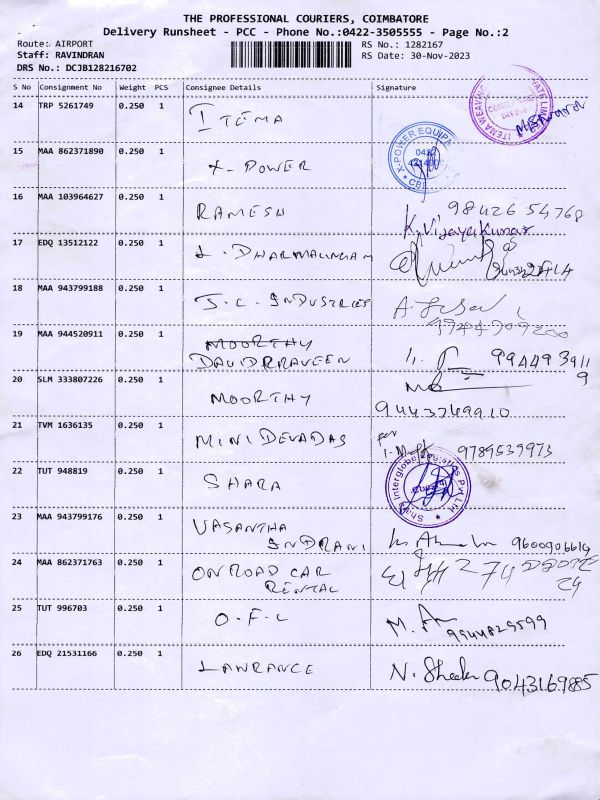 THE PROFESSIONAL COURIERS, COIMBATORE
Delivery Runsheet - PCC - Phone No.:0422-3505555 - Page No.:2
Route: AIRPORT RS No.: 1282167
Staff: RAVINDRAN RS Date: 30-Nov-2023
DRS No.: DCJB128216702
S No Consignment No Weight PCS Consignee Details Signature
14 TRP 5261749 0.250 1 ITEMA
15 MAA 862371890 0.250 1 X-POWER
X-POWER EQUIPA
16 MAA 103964627 0.250 1 RAMESH 98426 54768
K. Vijayakumar
17 EDQ 13512122 0.250 1 L. DHARMALINGAM
18 MAA 943799188 0.250 1 J. C. INDUSTRIES
19 MAA 944520911 0.250 1 MOORTHY
DAVIDRRAVEEN 99449 3911
9
20 SLM 333807226 0.250 1 MOORTHY
9443749910
21 TVM 1636135 0.250 1 MINI DEVADAS per
9789539973
22 TUT 948819 0.250 1 SHARA
23 MAA 943799176 0.250 1 VASANTHA
INDRANI 9600906614
24 MAA 862371763 0.250 1 ON ROAD CAR
RENTAL
25 TUT 996703 0.250 1 O.F.C M.
9944829599
26 EDQ 21531166 0.250 1 LAWRANCE N. 9043169885